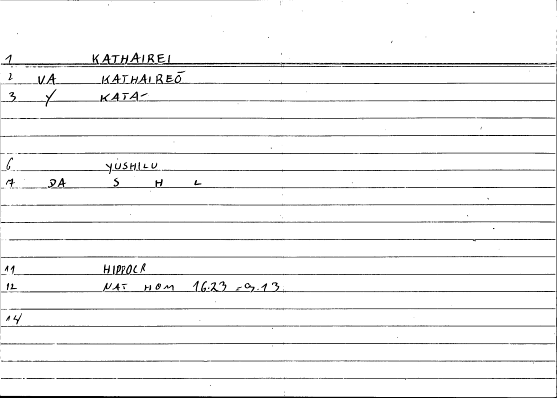 1 KATHAIREI
2 VA KATHAIREŌ
3 Y KATA-
6 YUSHILU
7 DA S H L
11 HIPPOCR
12 NAT HOM 16.23 = 9.13
14